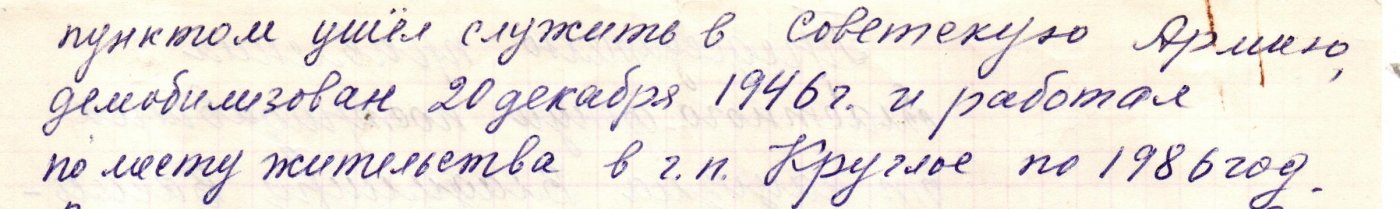 пунктом ушёл служить в Советскую Армию,
демобилизован 20 декабря 1946 г. и работал
по месту жительства в г.п. Круглое по 1986 год.